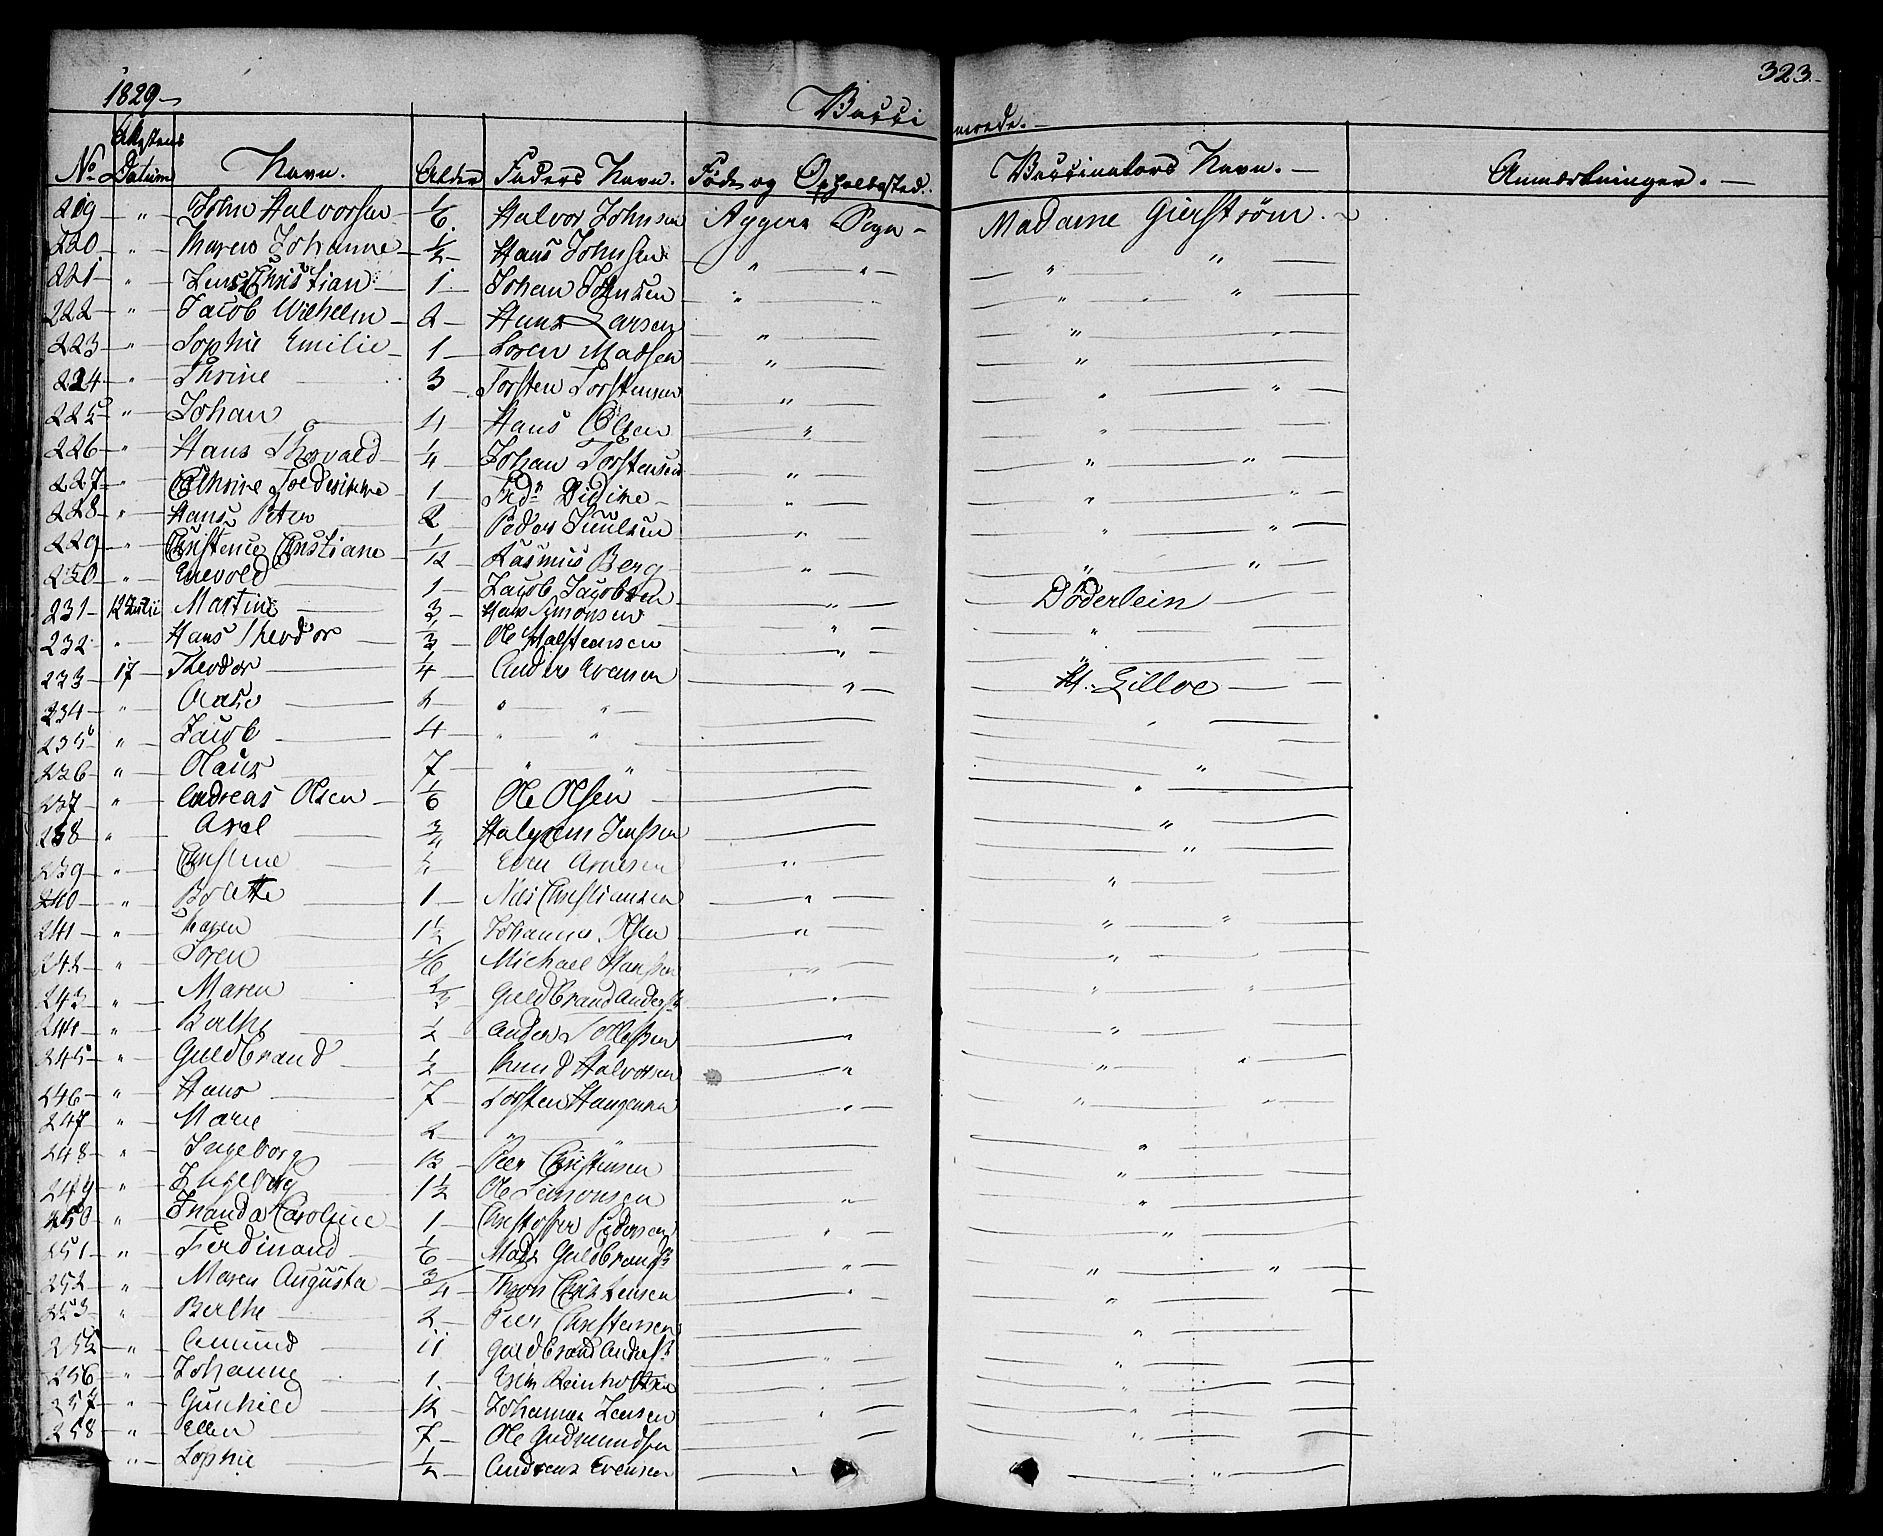 323.
1829
Vacci nerede.
No Attestens Datum Navn. Alder Faders Navn. Føde og Opholdssted. Vaccinators Navn. Anmærkninger.
219 " John Halvorsen 1/6 Halvor Johnsen Aggers Sogn Madame Gierstrøm.
220 " Maren Johanne 1/2 Hans Johnsen " " " "
221 " Jens Christian 1 Johan Johnsen " " "
222 " Jacob Wilhelm 2 Hans Larsen " "
223 " Sophie Emilie 1 Soren Madsen " "
224 " Thrine 3 Torsten Torstensen " " "
225 " Johan 11 Hans Olsen " "
226 " Hans Thorvald 1/4 Johan Torstensen " " "
227 " Cathrine 1 Didine " " "
228 " Hans Peter 2 Peder Juulsen " " "
229 " Christence Christiane 1/12 Rasmus Berg " " "
230 " Enevold 1 Jacob Jacobsen "
231 12 Julii Martine 3 Hans Simonsen " Døderlein
232 " Hans Theodor 2/3 Ole Halstensen " "
233 17 Theodor 1/4 Anders Evensen " H. Lilloe
234 " 2 " " "
235 " Jacob 4 " "
236 " Olaus 7 " " "
237 " Andreas Olsen 1/6 Ole Olsen "
238 " Axel 3/4 Jensen "
239 " Christine 1/2 Even Arnesen " "
240 " Bolette 1 Nils Christiansen " "
241 " Karen 1 1/2 Johannes Olsen " "
242 " Soren Michael Hansen " "
243 " Maren 2/3 Guldbrand Anders " "
244 " Berthe 1/2 Anders "
245 " Guldbrand 1/2 Knud Halvorsen " "
246 " Hans 7 Torsten " "
247 " Marie 2 " "
248 " Ingeborg 12 Peer Christensen "
249 " Ingeborg 1 1/2 Ole Simonsen " "
250 " Caroline 1 Christoffer Pedersen " "
251 " Ferdinand 1/6 Mads Guldbrands " " "
252 " Maren Augusta 3/4 Christensen " "
253 " Berthe 2 Peer Christensen "
255 " Amund 11 Guldbrand Anders " "
256 " Johanne 1 Reinholtsen " "
257 " Gunhild 12 Johannes Jensen "
258 " Ellen 7 Ole Gudmundsen
" Sophie 1/2 Andreas Evensen "